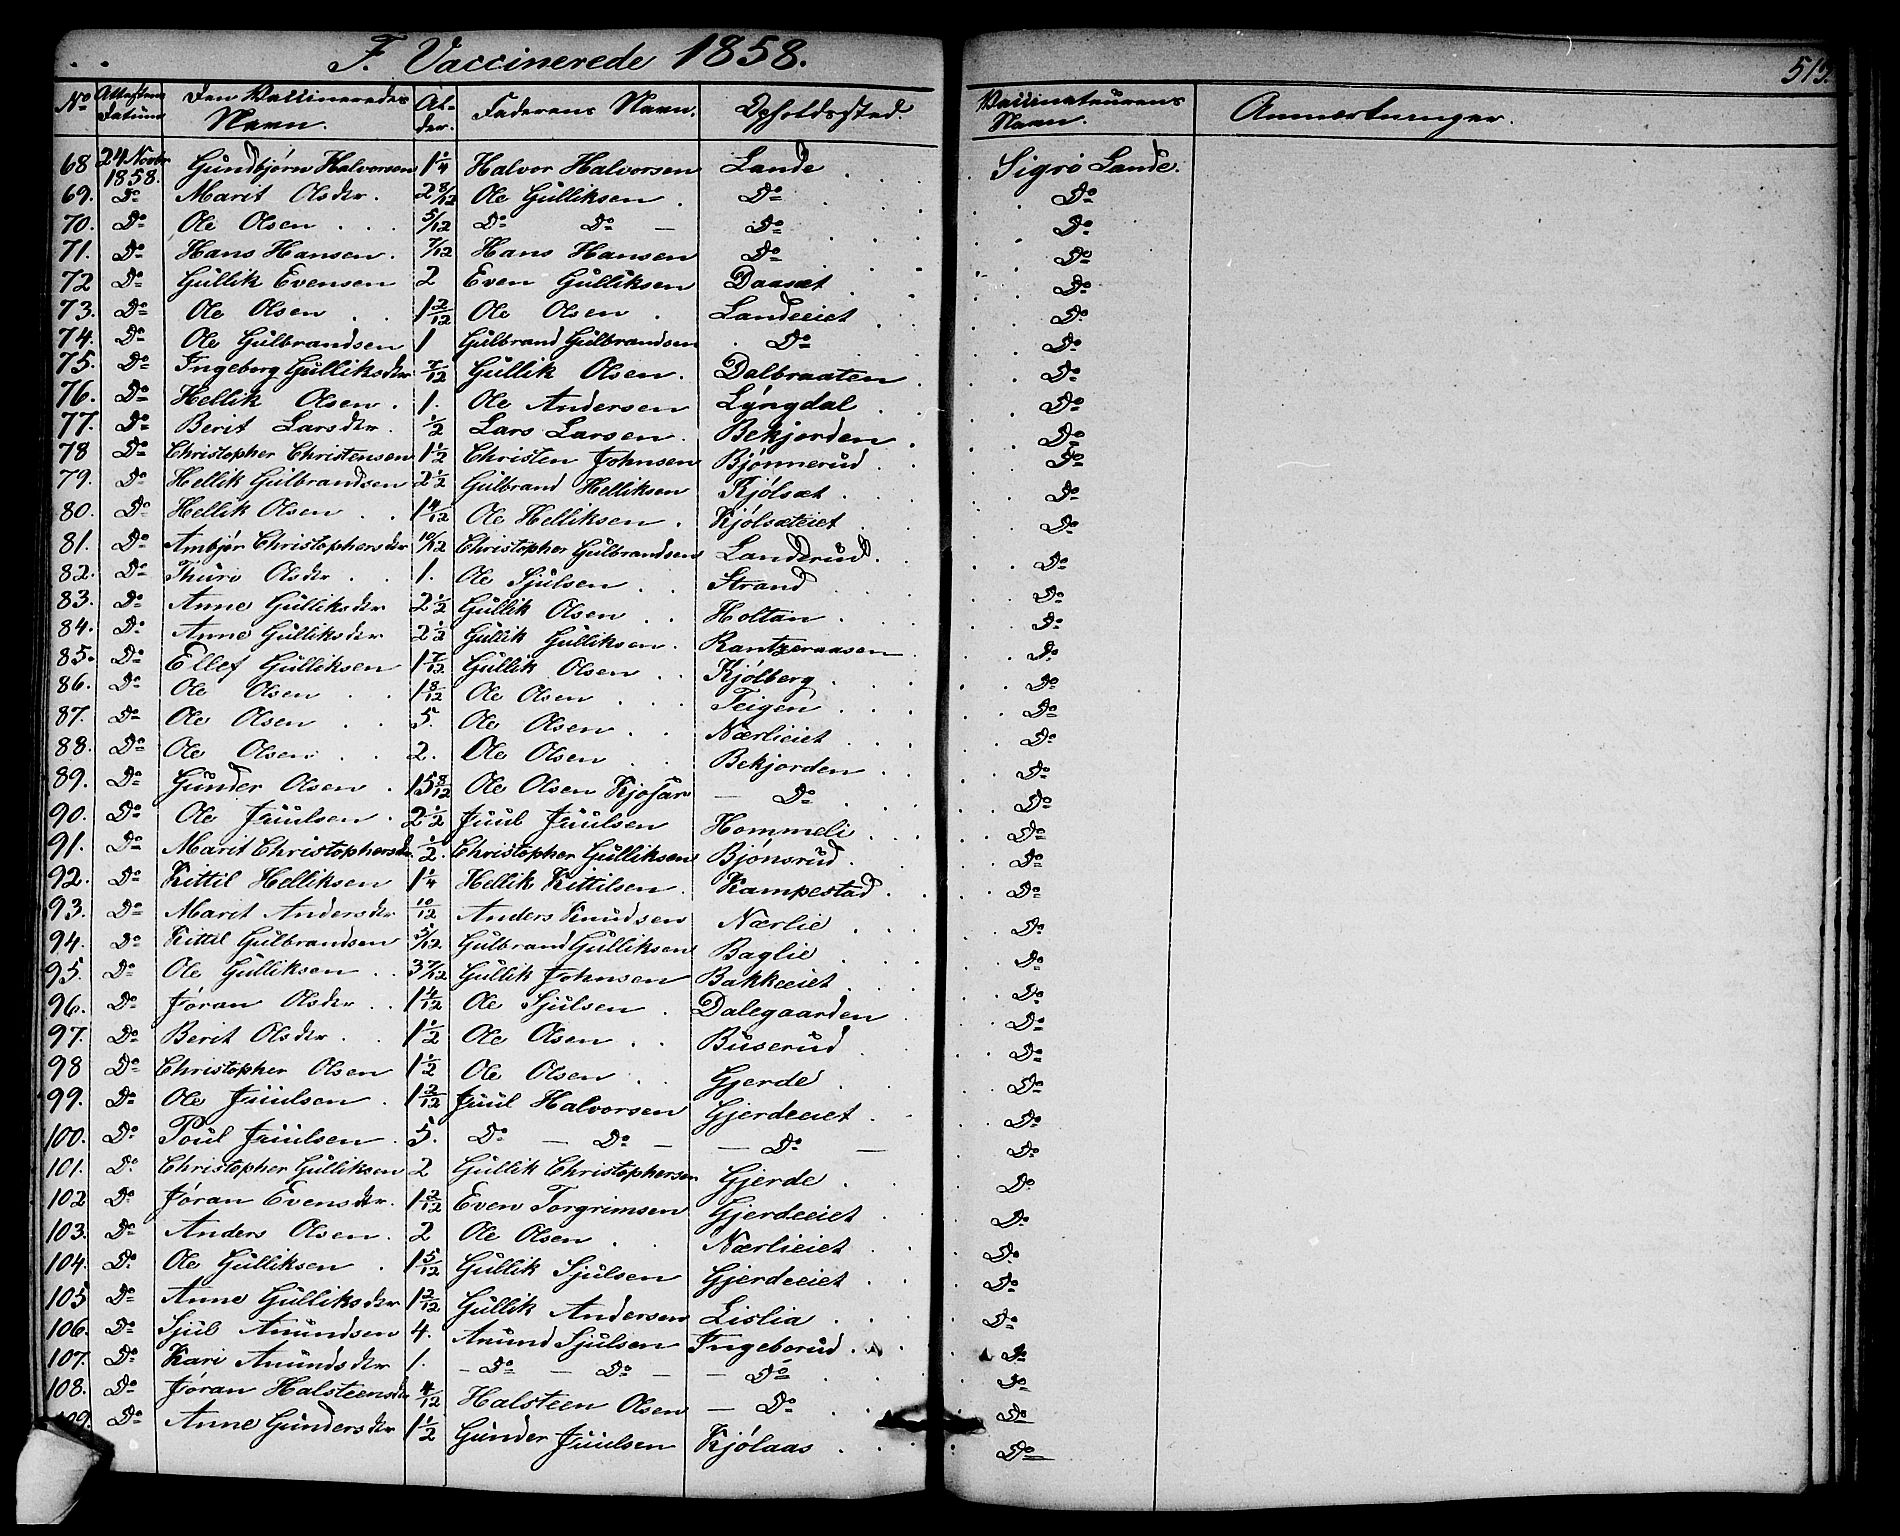 F. Vaccinerede 1858.
515.
No Attestens Datum Den Vaccineredes Navn. Al- der. Faderens Navn. Opholdssted. Vaccinateurens Navn. Anmærkninger.
68 24 Novbr 1858. Gundbjørn Halvorsen 1 1/4 Halvor Halvorsen Lande Sigrø Lande.
69. Do Marit Olsdtr. 2 8/12 Ole Gulliksen Do Do
70. Do Ole Olsen 5/12 Do Do Do Do
71. Do Hans Hansen. 7/12 Hans Hansen Do Do
72 Do Gullik Evensen 2 Even Gulliksen Daaset Do
73. Do Ole Olsen 1 2/12 Ole Olsen Landeeiet Do
74. Do Ole Gulbrandsen 1 Gulbrand Gulbrandsen Do Do
75. Do Ingeborg Gulliksdtr 7/12 Gullik Olsen. Dalbraaten Do
76. Do Hellik Olsen 1. Ole Andersen Lyngdal Do
77. Do Berit Larsdtr. 1/2 Lars Larsen Bekjorden Do
78 Do Christopher Christensen 1 1/2 Christen Johnsen Bjønnerud Do
79. Do Hellik Gulbrandsen 2 1/2 Gulbrand Helliksen Kjølsæt Do
80. Do Hellik Olsen 1 4/12 Ole Helliksen Kjølsæteiet Do
81. Do Ambjør Christophersdtr 10/12 Christopher Gulbrandsen Landerud Do
82. Do Thuro Olsdtr 1. Ole Sjulsen Strand Do
83. Do Anne Gulliksdtr 2 1/2 Gullik Olsen Holtan Do
84. Do Anne Gulliksdtr 2 1/2 Gullik Gulliksen. Rantzeraasen Do
85. Do Ellef Gulliksen 1 7/12 Gullik Olsen Kjølberg Do
86. Do Ole Olsen 1 8/12 Ole Olsen Teigen Do
87. Do Ole Olsen 5. Ole Olsen Nærlieiet Do
88. Do Ole Olsen 2. Ole Olsen Bekjorden Do
89. Do Gunder Olsen 15 8/12 Ole Olsen — Do Do
90. Do Ole Juulsen 2 1/2 Juul Juulsen Hommeli Do
91. Do Marit Christophersdtr. 1/2. Christopher Gulliksen Bjønsrud Do
92. Do Kittil Helliksen 1 1/4 Hellik Kittilsen Kampestad Do
93. Do Marit Andersdtr 10/12 Anders Knudsen Nærlie Do
94. Do Kittil Gulbrandsen 5/12 Gulbrand Gulliksen Baglie Do
95. Do Ole Gulliksen 3 7/12 Gullik Johnsen Bakkeeiet Do
96. Do Jøran Olsdtr 1 4/12 Ole Sjulsen Dalegaarden Do
97. Do Berit Olsdtr 1 1/2 Ole Olsen Buserud Do
98 Do Christopher Olsen 1 1/2 Ole Olsen Gjerde Do
99. Do Ole Juulsen 1 2/12 Juul Halvorsen Gjerdeeiet Do
100. Do Poul Juulsen 5. Do — Do — — Do — Do
101. Do Christopher Gulliksen 2 Gullik Christophersen Gjerde Do
102 Do Jøran Evensdtr. 1 2/12 Even Torgrimsen Gjerdeeiet Do
103. Do Anders Olsen. 2 Ole Olsen Nærlieiet Do
104. Do Ole Gulliksen 1 5/12 Gullik Sjulsen Gjerdeeiet Do
105 Do Anne Gulliksdtr 1 2/12 Gullik Andersen Lislia Do
106. Do Sjul Anundsen 4. Anund Sjulsen Ingeborud Do
107. Do Kari Anundsdtr 1. — Do — Do — — Do Do
108. Do Jøran Halsteensdtr 4/12 Halsteen Olsen — Do Do
109. Do Anne Gundersdtr 1 1/2 Gunder Juulsen Kjølaas Do